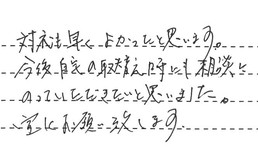 対応も早く よかったと思います。
今後自宅の取替え時にも相談に
のっていただきたいと思いました。
宜しくお願い致します。